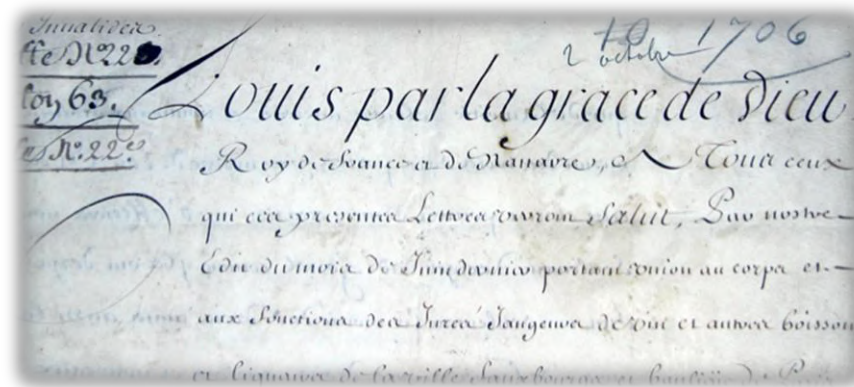 Invalides
N° 22
63.
N°. 22e
10 1706
2 octobre
Louis par la grace de Dieu
Roy de france et de Navarre, A Tous ceux
qui ces presentes Lettres verront Salut, Par nostre
Edit du mois de Juin dernier portant union au corps et
aux fonctions des Jurez Jaugeurs de vin et autres boissons
et liqueurs de la ville fauxbourgs et banlieüe de Paris